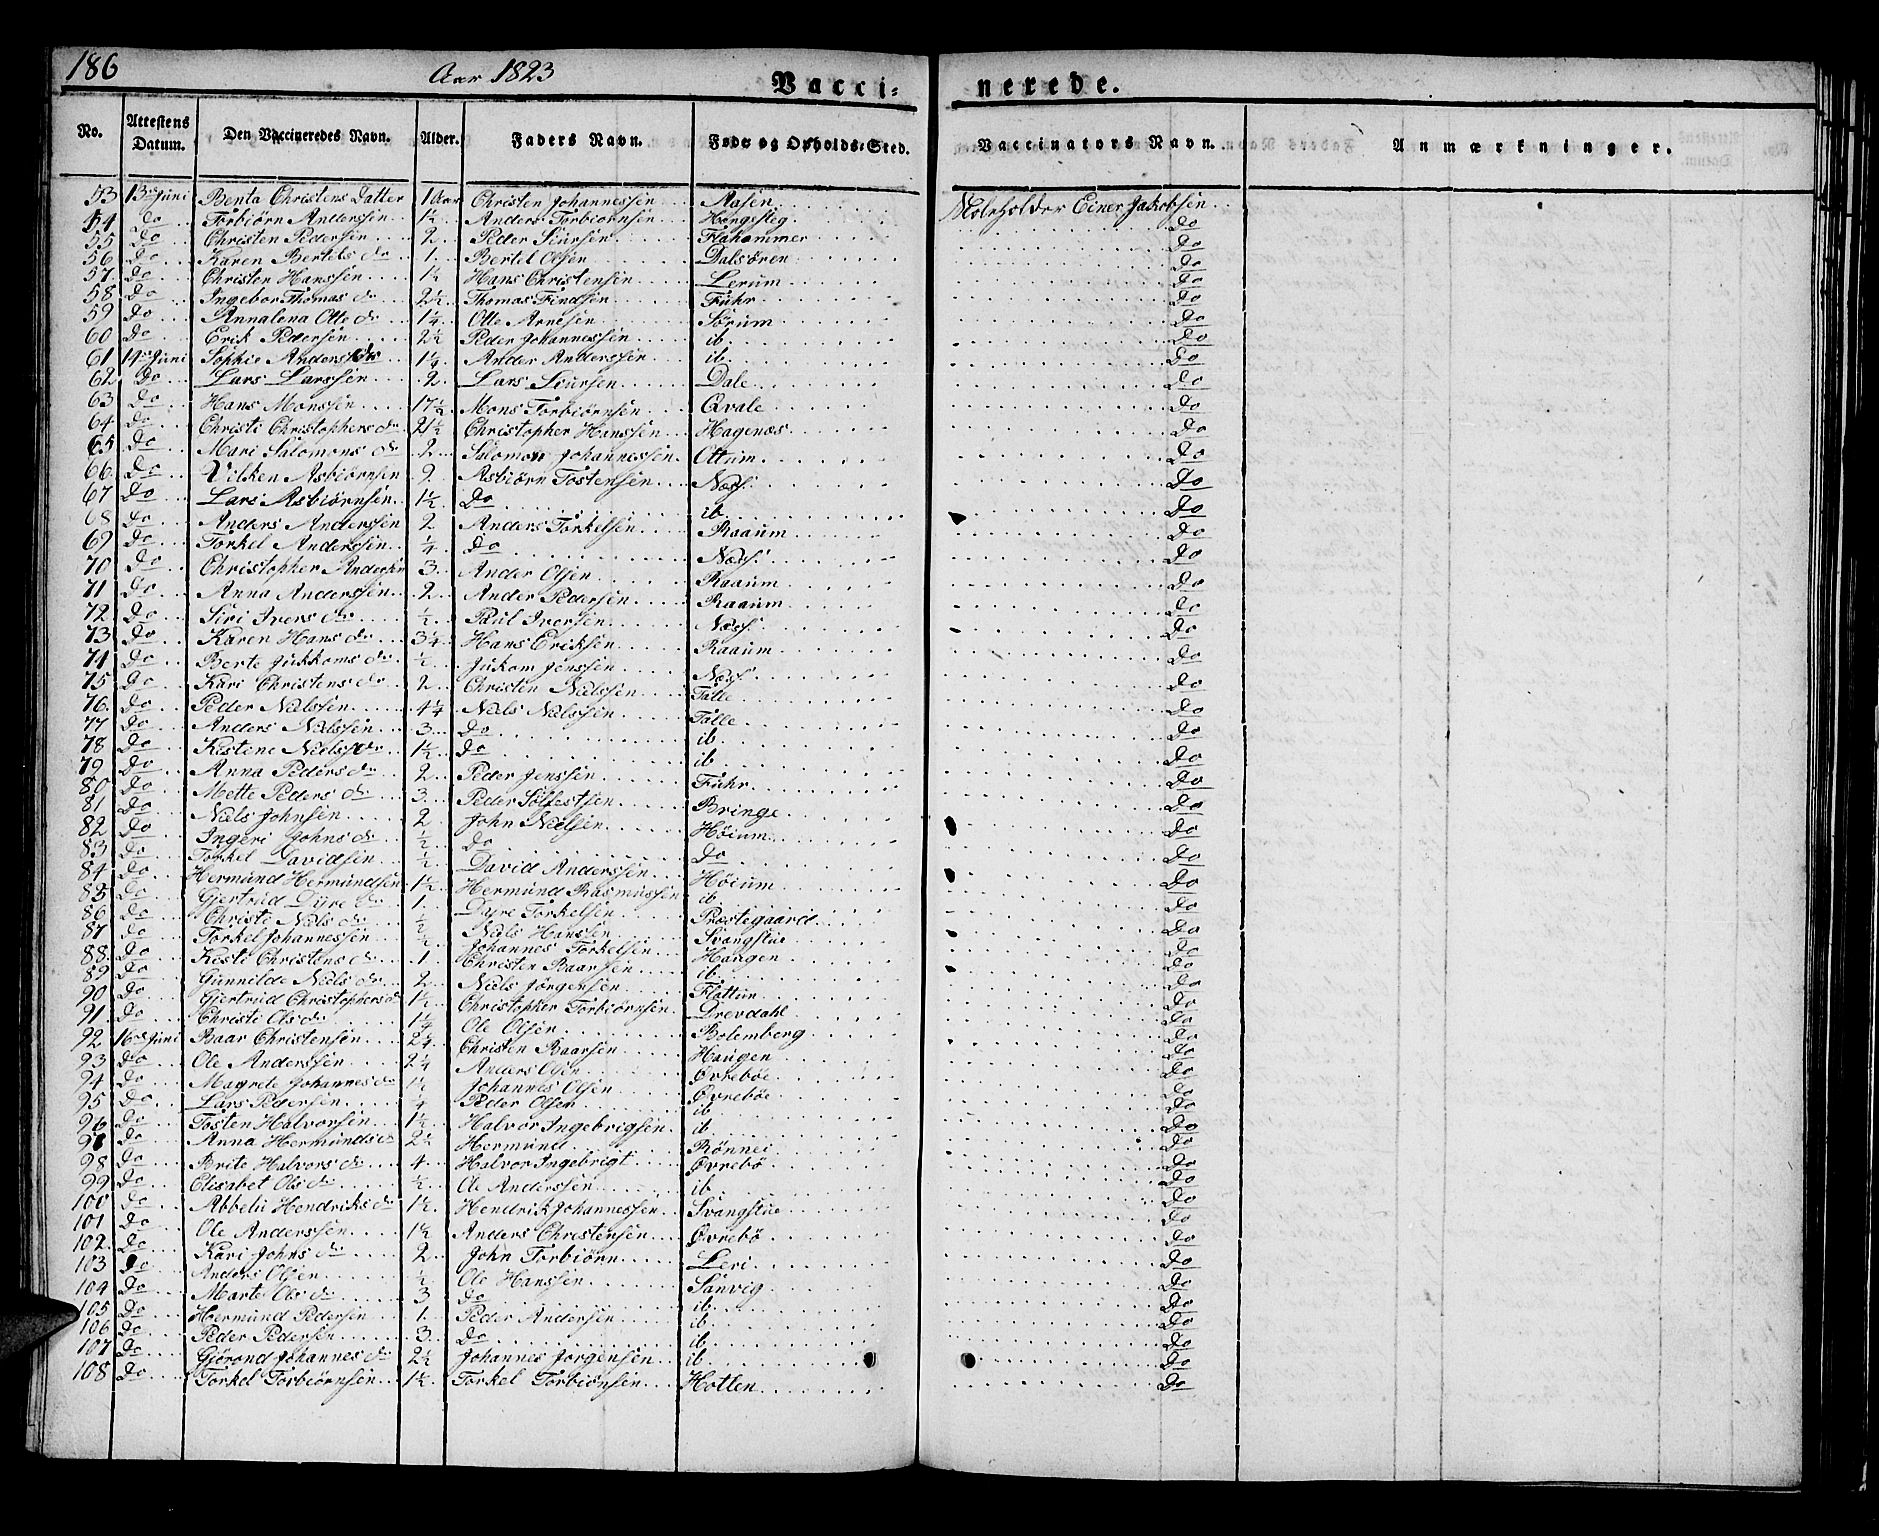 186 Aar 1823 Vacci- nerede.
No. Attestens Datum. Den Vaccineredes Navn. Alder. Faders Navn. Føde og Opholds-Sted. Vaccinators Navn. Anmærkninger.
53 13de Juni Benta Christens Datter 1 Aar Christen Johannessen Aasen Einer Jakobsen
54 Do Torbiørn Anderssen 1½ Anders Torbiørnsen Haugsteg Do
55 Do Christen Pedersen 2 Peder Siursen Flahammer Do
56 Do Karen Bertels dr 1 Bertel Olsen Dalsøren Do
57 Do Christen Hanssen 1½ Hans Christensen Lerum Do
58 Do Ingebor Thomas dr 2½ Thomas Findsen Fuhr Do
59 Do Annalena Otte dr 1¼ Otte Arnesen Sørum Do
60 Do Erik Pedersen 2½ Peder Johannessen ib Do
61 14de Juni Sophie Anders dr 1¼ Ander Anderssen ib Do
62 Do Lars Larssen 2 Lars Siursen Dale Do
63 Do Hans Monssen 17½ Mons Torbiørnsen Qvale Do
64 Do Christi Christophers dr 2½ Christopher Hanssen Hagenæs Do
65 Do Mari Salomons dr 2 Salomon Johannessen Ottum Do
66 Do Vilken Asbiørnsen 9 Asbiørn Tostensen Næss Do
67 Do Lars Asbiørnsen 1½ Do ib Do
68 Do Anders Anderssen 2 Anders Torkelsen Raaum Do
69 Do Torkel Anderssen ¼ Do Næss Do
70 Do Christopher Andersen 3 Ander Olsen Raaum Do
71 Do Anna Anderssen 2 Ander Pedersen Raaum Do
72 Do Siri Ivers dr ½ Paul Iversen Næss Do
73 Do Karen Hans dr 3¼ Hans Eriksen Raaum Do
74 Do Berte Jukkoms dr ½ Jukom Jenssen Næss Do
75 Do Kari Christens dr 2 Christen Nielssen Talle Do
76 Do Peder Nielssen 4¼ Niels Nielssen Talle Do
77 Do Anders Nielssen 3 Do ib Do
78 Do Kistene Niels dr 1½ Do ib Do
79 Do Anna Peders dr 2 Peder Jenssen Fuhr Do
80 Do Mette Peders dr 3 Peder Solfestsen Bringe Do
81 Do Niels Johnsen 2 John Nielsen Høium Do
82 Do Ingeri Johns dr ½ Do Do Do
83 Do Torkel Davidsen ½ David Anderssen Høium Do
84 Do Hermund Hermundsen 1½ Hermund Rasmussen ib Do
85 Do Gjertrud Dyre dr 1 Dyre Torkelsen Præstegaard Do
86 Do Christi Niels dr ½ Niels Hanssen Svangstue Do
87 Do Torkel Johannessen ½ Johannes Torkelsen Haugen Do
88 Do Kisti Christens dr 1 Christen Baarsen ib Do
89 Do Gunnilde Niels dr 2 Niels Jørgensen Flattun Do
90 Do Gjertrud Christophers dr 1½ Christopher Torbiørnsen Drevdahl Do
91 Do Christi Ols dr 1¼ Ole Olsen Bolemberg Do
92 16de Juni Baar Christensen 2¼ Christen Baarsen Haugen Do
93 Do Ole Anderssen 2¼ Anders Olsen Øvrebøe Do
94 Do Magrete Johannes dr 1½ Johannes Olsen Øvrebøe Do
95 Do Lars Pedersen ¼ Peder Olsen ib Do
96 Do Tosten Halvorsen 1½ Halvor Ingebrigsen ib Do
97 Do Anna Hermunds dr 2½ Hermund Rønnei Do
98 Do Brite Halvors dr 4 Halvor Ingebrigt Øvrebø Do
99 Do Elisabet Ols dr ½ Ole Anderssen ib Do
100 Do Abbelu Hendriks dr 1½ Hendrik Johannessen Svangstue Do
101 Do Ole Anderssen 1½ Anders Christensen Øvrebø Do
102 Do Kari Johns dr 2 John Torbiørn Leri Do
103 Do Anders Olsen ½ Ole Hanssen Sanvig Do
104 Do Marte Ols dr 3 Do ib Do
105 Do Hermund Pedersen 1 Peder Andersen ib Do
106 Do Peder Pedersen 3 Do ib Do
107 Do Gjørond Johannes dr 2½ Johannes Jorgensen ib Do
108 Do Torkel Torbiørnsen 1½ Torkel Torbiønsen Hotten Do